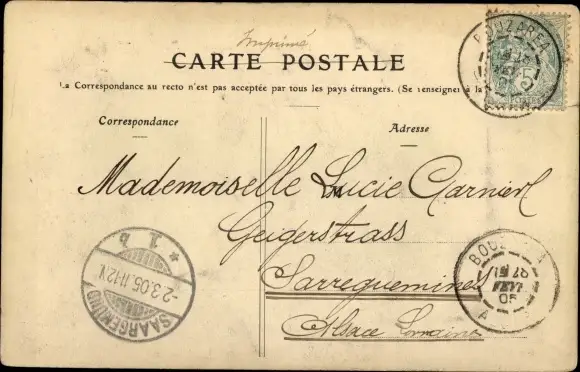 Imprimé
CARTE POSTALE
La Correspondance au recto n'est pas acceptée par tous les pays étrangers. (Se renseigner à la
Correspondance
Adresse
Mademoiselle Lucie Garnier
Geigerstrass
Sarreguemines
Alsace Lorraine
BOUZAREA
5
SAARGEMÜND
-2.3.05.11-12V.
* b
BOUZAREA
27
05